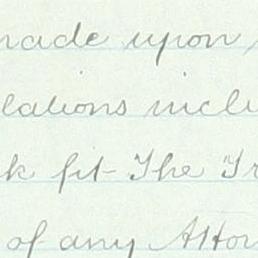 made upon
lations inclu
k fit The Tr
of any Attor